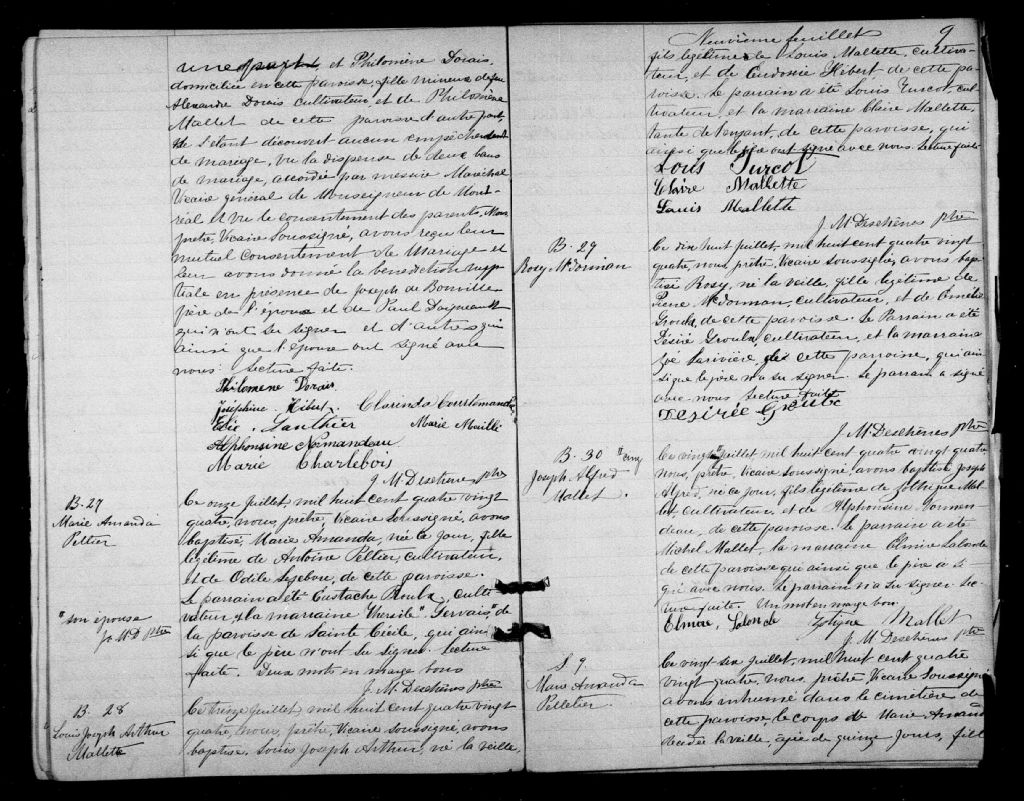 et Philomène Dorais,
domiciliée en cette paroisse, fille mineure de feu
Alexandre Dorais cultivateur, et de Philomène
Mallet de cette paroisse d'autre part,
ne s'étant découvert aucun empêchement
de mariage, vu la dispense de deux bans
de mariage, accordée par messire Maréchal
Vicaire general de Monseigneur de Mont-
réal et vu le consentement des parents, Nous,
prêtre, Vicaire Soussigné, avons reçu leur
mutuel consentement de Mariage et
leur avons donné la bénédiction nup-
tiale en présence de Joseph de Bonville
père de l'époux et de Paul Daigneault
qui n'ont su signer et d'autres qui
ainsi que l'épouse ont signé avec
nous. Lecture faite.
Philomène Dorais
Joséphine Hibert. Clorinda Courtemanche
Gauthier Marie Maillé
Alphonsine Normandeau
Marie Charlebois
J. M. Deschênes ptre
B. 27
Marie Amanda
Peltier
Ce onze Juillet, mil huit cent quatre vingt
quatre, nous, prêtre, Vicaire Soussigné, avons
baptisé, Marie Amanda, née ce jour, fille
légitime de Antoine Peltier, cultivateur,
et de Odile Lefebvre, de cette paroisse.
Le parrain a été Eustache Roulx, culti-
vateur, & la marraine Thersile " Gervais", de
" son épouse
J. M. D. ptre
la paroisse de Sainte Cécile, qui ain-
si que le père n'ont su signer. Lecture
faite. Deux mots en marge bons
J. M. Deschênes ptre
B. 28
Louis Joseph Arthur
Mallette
Ce treize Juillet, mil huit cent quatre vingt
quatre, nous, prêtre, Vicaire Soussigné, avons
baptisé, Louis Joseph Arthur, né la veille,
Neuvième feuillet 9
fils légitime de Louis Mallette, cultiva-
teur, et de Eudoxie Hébert de cette pa-
roisse. Le parrain a été Louis Turcot, cul-
tivateur, et la marraine Claire Mallette,
tante de l'enfant, de cette paroisse, qui
ainsi que le père ont signé avec nous. Lecture faite
Louis Turcot
Claire Mallette
Louis Mallette
J. M. Deschênes ptre
B. 29
Rosy McGorman
Ce dix huit juillet, mil huit cent quatre vingt
quatre, nous, prêtre, Vicaire soussigné, avons bap-
tisé Rosy, né la veille, fille légitime de
Pierre McGorman, cultivateur, et de Amélie
Groulx, de cette paroisse. Le Parrain a été
Désiré Groulx, cultivateur, et la marraine
Zoé Larivière, de cette parroisse, qui ain-
si que le père n'a su signer. Le parrain a signé
avec nous Lecture faite
Desirée Groulx
J. M. Deschênes ptre
B. 30 "cinq
Joseph Alfred
Mallet.
Ce vingt " Juillet, mil huit cent quatre vingt quatre
nous, prêtre, Vicaire Soussigné, avons baptisé Joseph
Alfred, né ce jour, fils légitime de Zothique Mal-
let Cultivateur, et de Alphonsine Norman-
deau, de cette paroisse. Le parrain a été
Michel Mallet, la marraine Elmire Lalonde
de cette paroisse qui ainsi que le père a si-
gné avec nous. Le parrain n'a su signer. Lec-
ture faite. Un mot en marge bon.
Elmire, Lalonde Mallet
J. M. Deschênes ptre
S. 9.
Marie Amanda
Pelletier
Ce vingt six Juillet, mil huit cent quatre
vingt quatre, nous, prêtre Vicaire Soussigné
avons inhumé dans le cimetière de
cette paroisse, le corps de Marie Amanda
décédée la veille, agée de quinze jours, fill